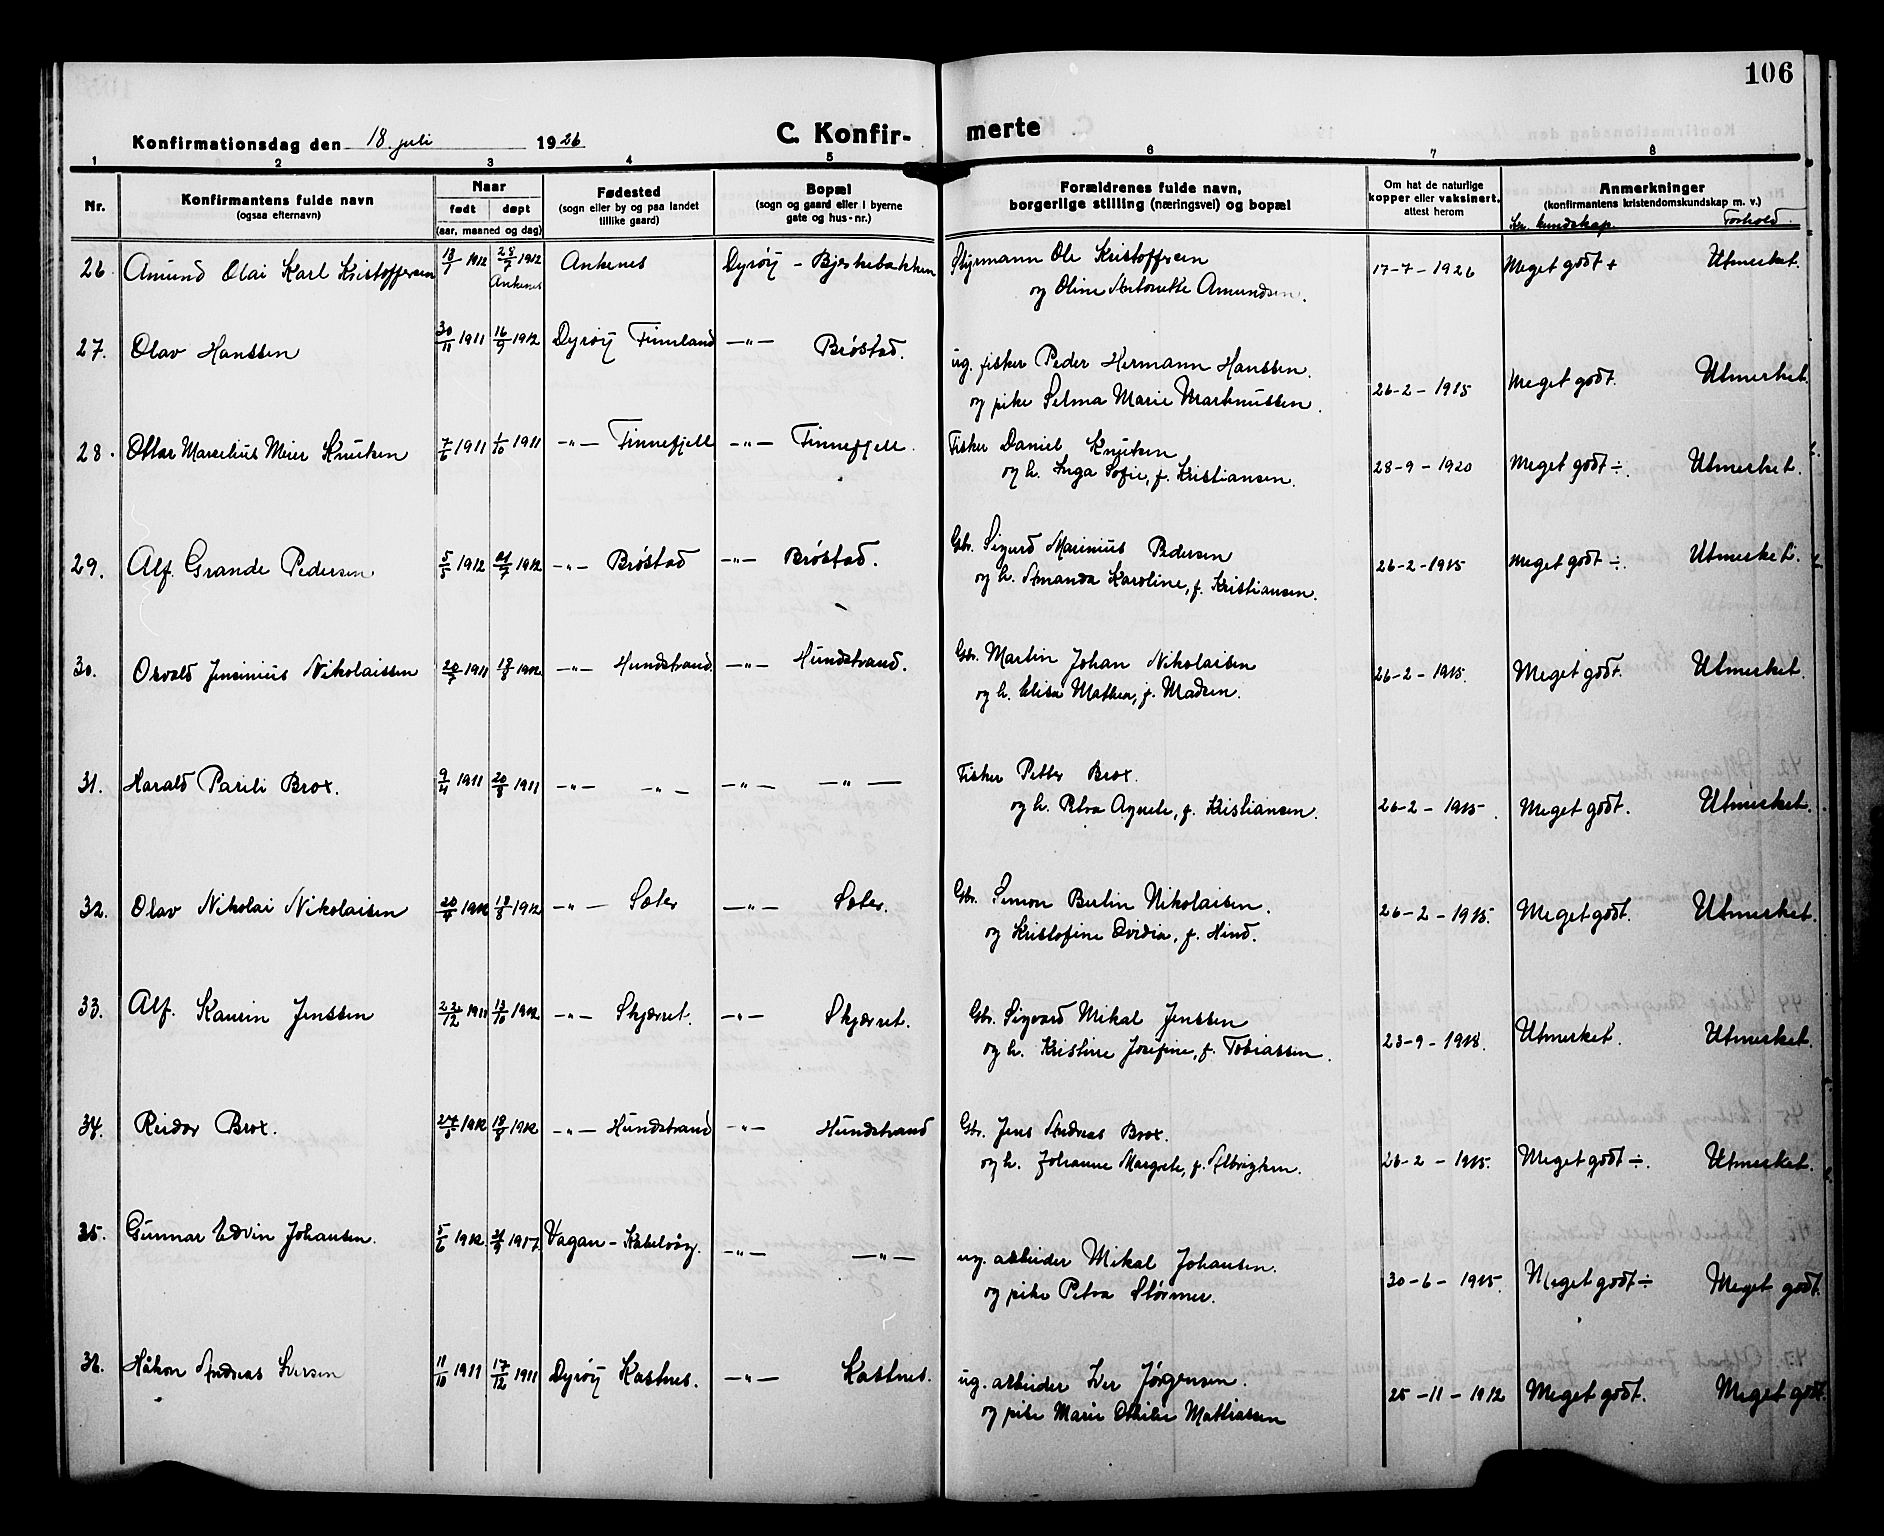 106
Konfirmationsdag den 18 juli 1926
C. Konfir- merte
1 2 3 4 5 6 7 8
Nr.
Konfirmantens fulde navn
(ogsaa efternavn)
Naar
født døpt
(aar, maaned og dag)
Fødested
(sogn eller by og paa landet
tillike gaard)
Bopæl
(sogn og gaard eller i byerne
gate og hus-nr.)
Forældrenes fulde navn,
borgerlige stilling (næringsvei) og bopæl
Om hat de naturlige
kopper eller vaksinert,
attest herom
Anmerkninger
(konfirmantens kristendomskundskap m. v.)
Kr. kundskap. Forhold.
26. Amund Olai Karl Kristoffersen 18/7 1912 28/7 1912 Ankenes Dyrøy - Bjerkebakken Styrmann Ole Kristoffersen 17-7-1926 Meget godt + Utmerket.
Ankenes og Oline Antonette Amundsen.
27. Olav Hanssen 30/11 1911 16/9 1912 Dyrøy Finnland -"- Brøstad. ug. fisker Peder Hermann Hanssen.
og pike Selma Marie Marknussen. 26-2-1915 Meget godt. Utmerket.
28. Ottar Marselius Meier Knutsen 7/6 1911 1/10 1911 -"- Finnefjell -"- Finnefjell. Fisker Daniel Knutsen
og h. Inga Sofie, f. Kristiansen. 28-9-1920 Meget godt ÷. Utmerket.
29. Alf Grande Pedersen 5/5 1912 21/7 1912 -"- Brøstad -"- Brøstad. Gbr. Sigurd Marinius Pedersen
og h. Amanda Karoline, f. Kristiansen. 26-2-1915 Meget godt ÷. Utmerket.
30. Osvald Jensinius Nikolaissen 20/7 1911 18/8 1912 -"- Hundstrand. -"- Hundstrand. Gbr. Martin Johan Nikolaisen
og h. Elisa Mathea, f. Madsen. 26-2-1915. Meget godt. Utmerket.
31. Harald Pareli Brox. 9/4 1911 20/8 1911 -"- -"- -"- -"- Fisker Petter Brox.
og h. Petra Agnete, f. Kristiansen. 26-2-1915. Meget godt. Utmerket.
32. Olav Nikolai Nikolaisen 20/4 1912 18/8 1912 -"- Sæter -"- Sæter. Gbr. Simon Berlin Nikolaisen.
og Kristofine Ovidia, f. Hind. 26-2-1915. Meget godt. Utmerket.
33. Alf. Kaurin Jenssen 22/12 1911 13/10 1912 -"- Skjærret. -"- Skjærret. Gbr. Sigvard Mikal Jenssen
og h. Kristine Josefine, f. Tobiassen. 23-9-1918. Utmerket. Utmerket.
34. Reidar Brox. 27/5 1912 18/8 1912 -"- Hundstrand -"- Hundstrand Gbr. Jens Andreas Brox.
og h. Johanne Margrete, f. Albrigtsen. 26-2-1915. Meget godt ÷. Utmerket.
35. Gunnar Edvin Johansen. 5/6 1912 21/9 1917 Vågan - Kabelvåg. -"- -"- ug. arbeider Mikal Johansen.
og pike Petra Størmer. 30-6-1915. Meget godt ÷ Meget godt.
36. Håkon Andreas Iversen 11/10 1911 17/12 1911 Dyrøy Kastnes. -"- Kastnes. ug. arbeider Iver Jørgensen.
og pike Marie Othilie Mathiassen 25-11-1912 Meget godt. Meget godt.